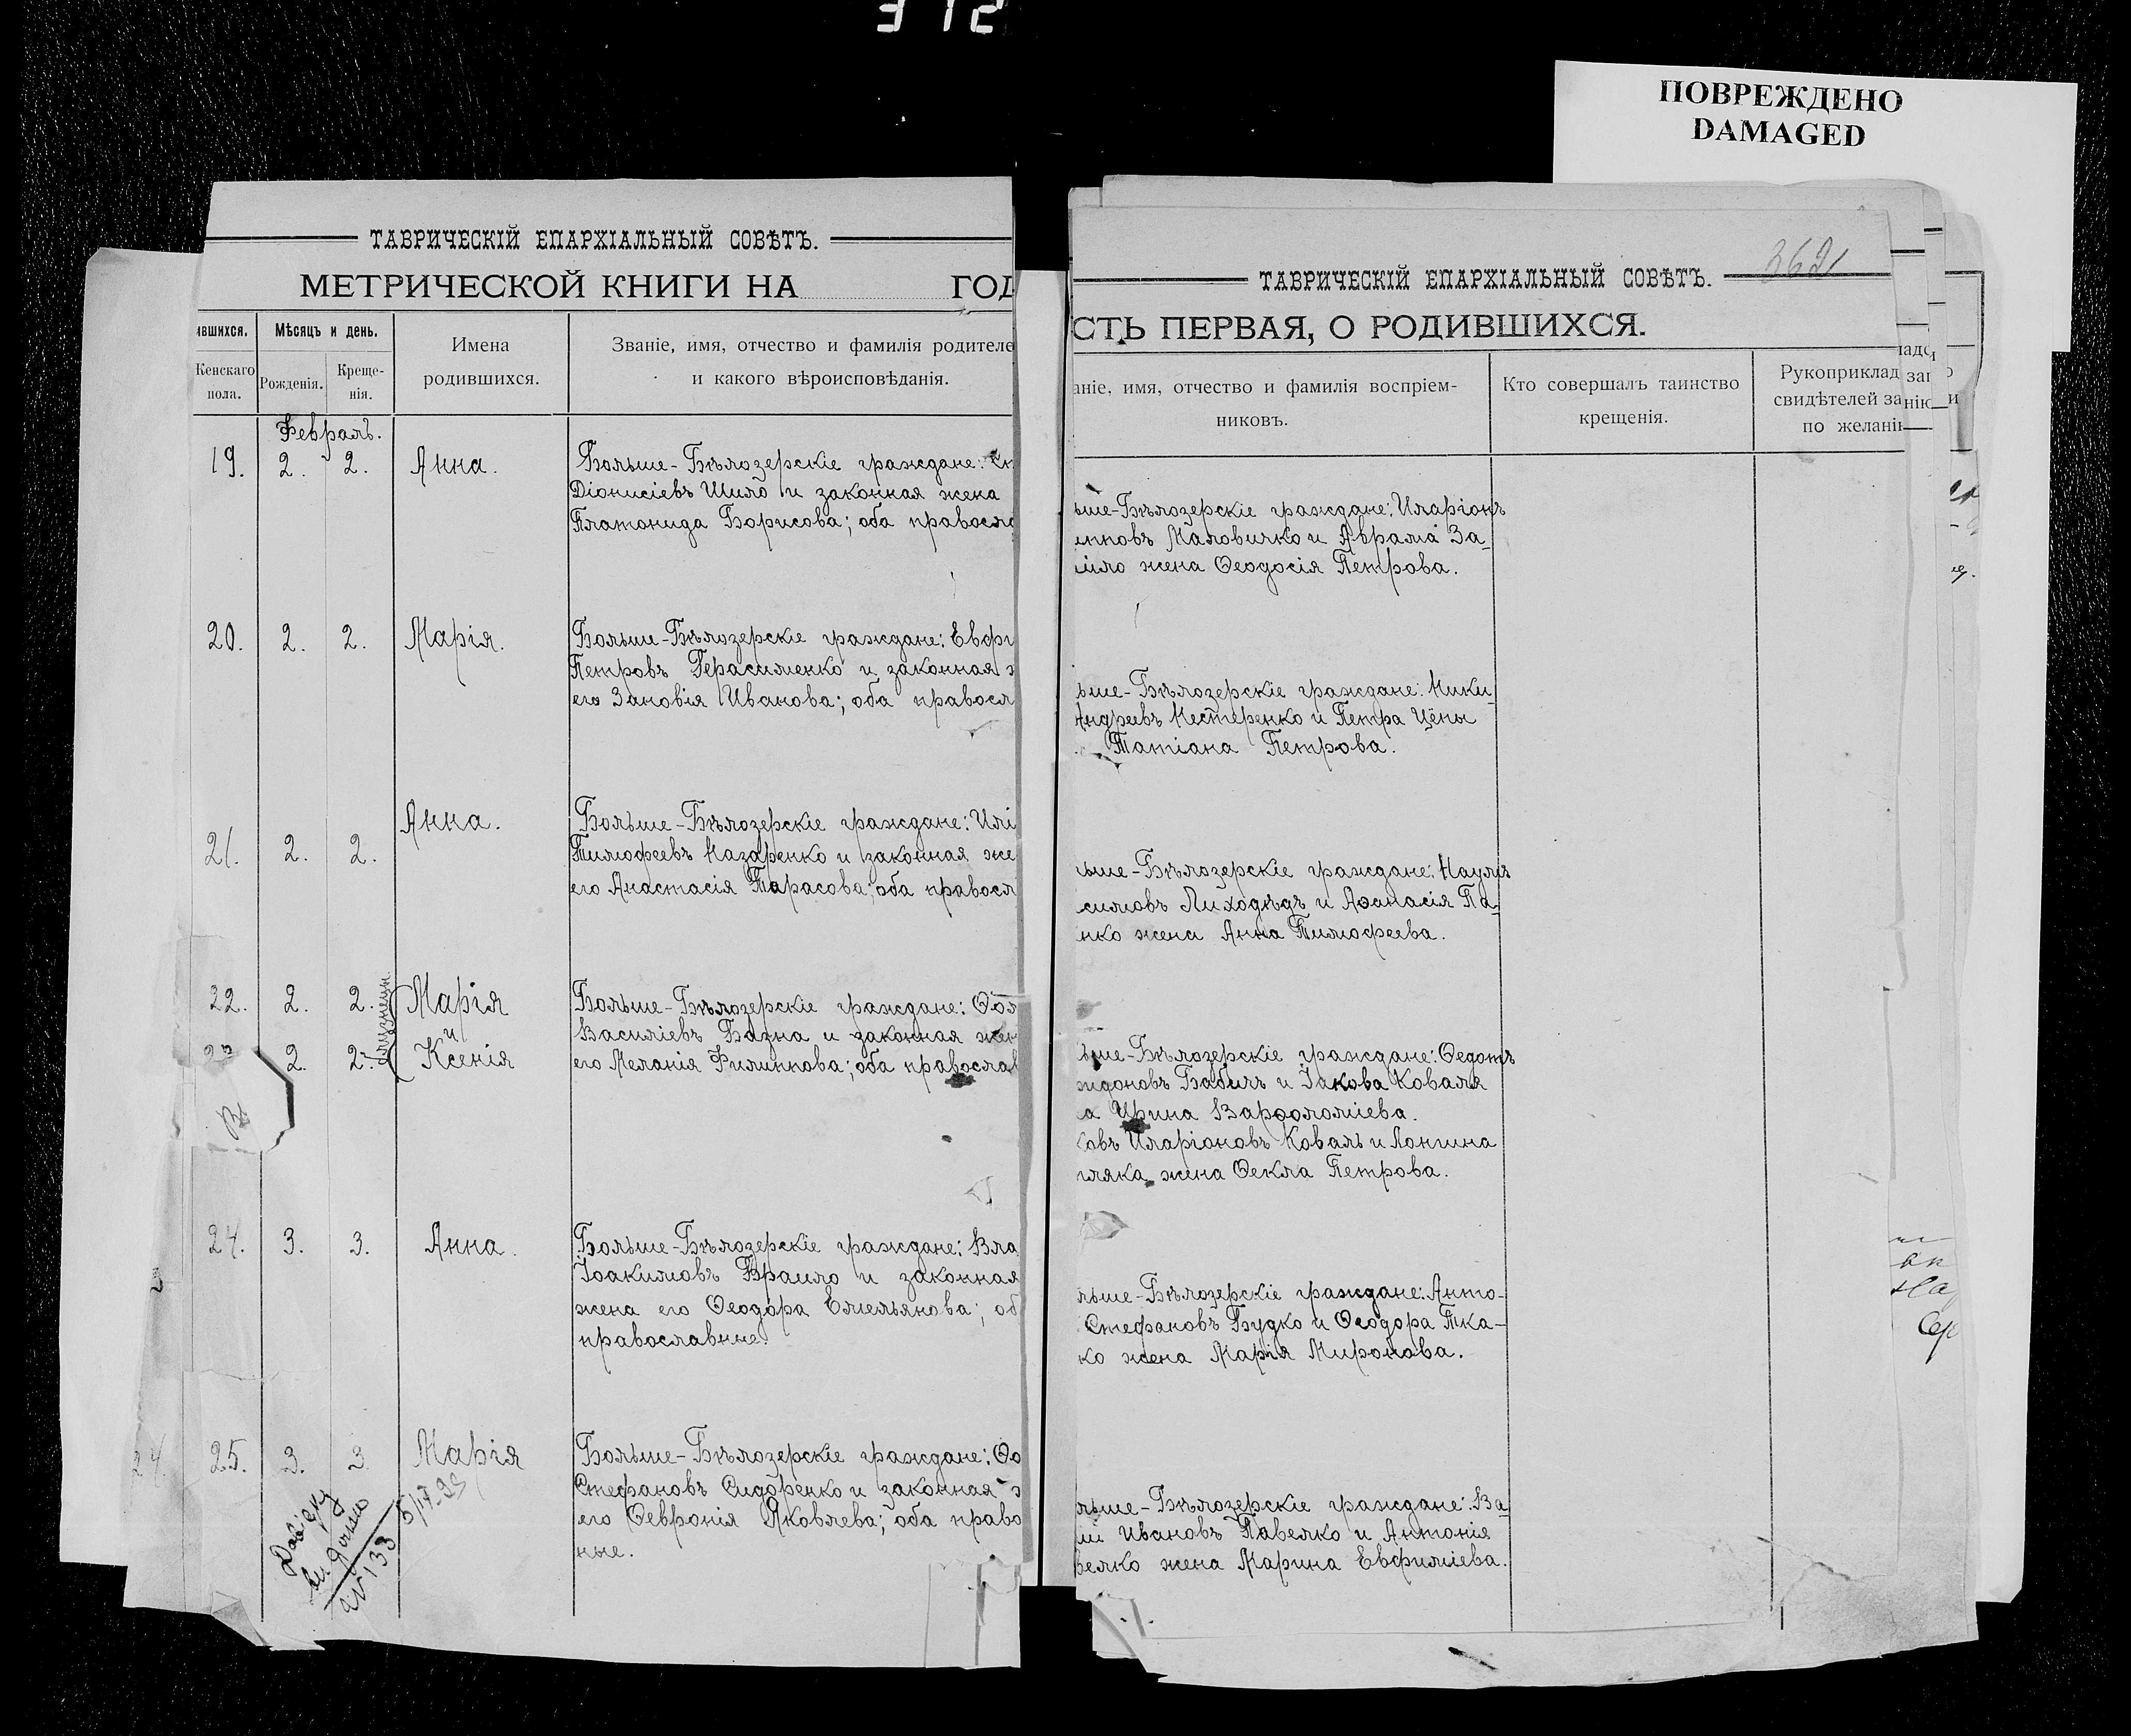 312
ПОВРЕЖДЕНО
DAMAGED
ТАВРИЧЕСКІЙ ЕПАРХІАЛЬНЫЙ СОВѢТЪ.
МЕТРИЧЕСКОЙ КНИГИ НА ГОД
ившихся.
Мѣсяцъ и день.
Имена
родившихся.
Званіе, имя, отчество и фамилія родителе
и какого вѣроисповѣданія.
Женскаго
пола.
Рожденія.
Креще-
нія.
Февраль.
19. 2. 2. Анна.
Больше-Бѣлозерскіе граждане:
Діонисіевъ Шило и законная жена
Платонида Борисова; оба правосла
20. 2. 2. Марія.
Больше-Бѣлозерскіе граждане: Евфи
Петровъ Герасименко и законная ж
его Зановія Иванова; оба правосл
21. 2. 2. Анна.
Больше-Бѣлозерскіе граждане: Илі
Тимофеевъ Назаренко и законная же
его Анастасія Тарасова; оба правосл
22. 2. 2. Марія
и
23 2. 2. Ксенія
близнецы
Больше-Бѣлозерскіе граждане: Ѳо
Василіевъ Базна и законная жен
его Меланія Филиппова; оба православ
24. 3. 3. Анна.
Больше-Бѣлозерскіе граждане: Вла
Іоакимовъ Браило и законная
жена его Ѳеодора Емельянова; об
православные.
24.
25. 3. 3 Марія
Больше-Бѣлозерскіе граждане: Ѳо
Стефановъ Сидоренко и законная ж
его Ѳевронія Яковлева; оба право
ные.
№ 133
5/IV-93
3621
ТАВРИЧЕСКІЙ ЕПАРХІАЛЬНЫЙ СОВѢТЪ.
СТЬ ПЕРВАЯ, О РОДИВШИХСЯ.
аніе, имя, отчество и фамилія воспріем-
никовъ.
Кто совершалъ таинство
крещенія.
Рукоприклад
свидѣтелей за
по желані
ьше-Бѣлозерскіе граждане: Иларіонъ
иповъ Маловичко и Аврамія За-
ило жена Ѳеодосія Петрова.
ьше-Бѣлозерскіе граждане: Ники-
Андреевъ Нестеренко и Петра Цёны
Татіана Петрова.
ьше-Бѣлозерскіе граждане: Наумъ
симовъ Лиходѣдъ и Аѳанасія Па-
нко жена Анна Тимофеева.
ьше-Бѣлозерскіе граждане: Ѳедотъ
идоновъ Бабичъ и Іакова Коваля
а Ирина Варѳоломіева.
овъ Иларіоновъ Коваль и Лонгина
ляка жена Ѳекла Петрова.
льше-Бѣлозерскіе граждане: Анто-
Стефановъ Будко и Ѳеодора Тка-
ко жена Марія Миронова.
льше-Бѣлозерскіе граждане: Ва-
ій Ивановъ Павелко и Антонія
велко жена Марина Евфиміева.